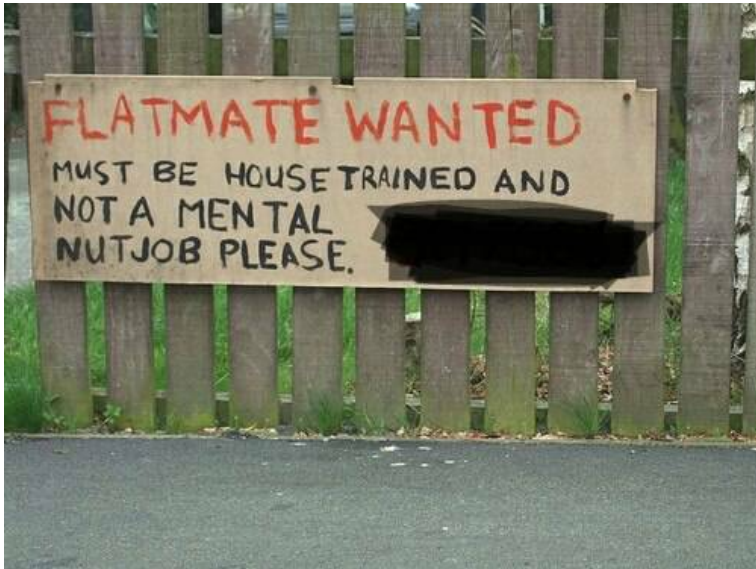 FLATMATE WANTED
MUST BE HOUSETRAINED AND
NOT A MENTAL
NUTJOB PLEASE.